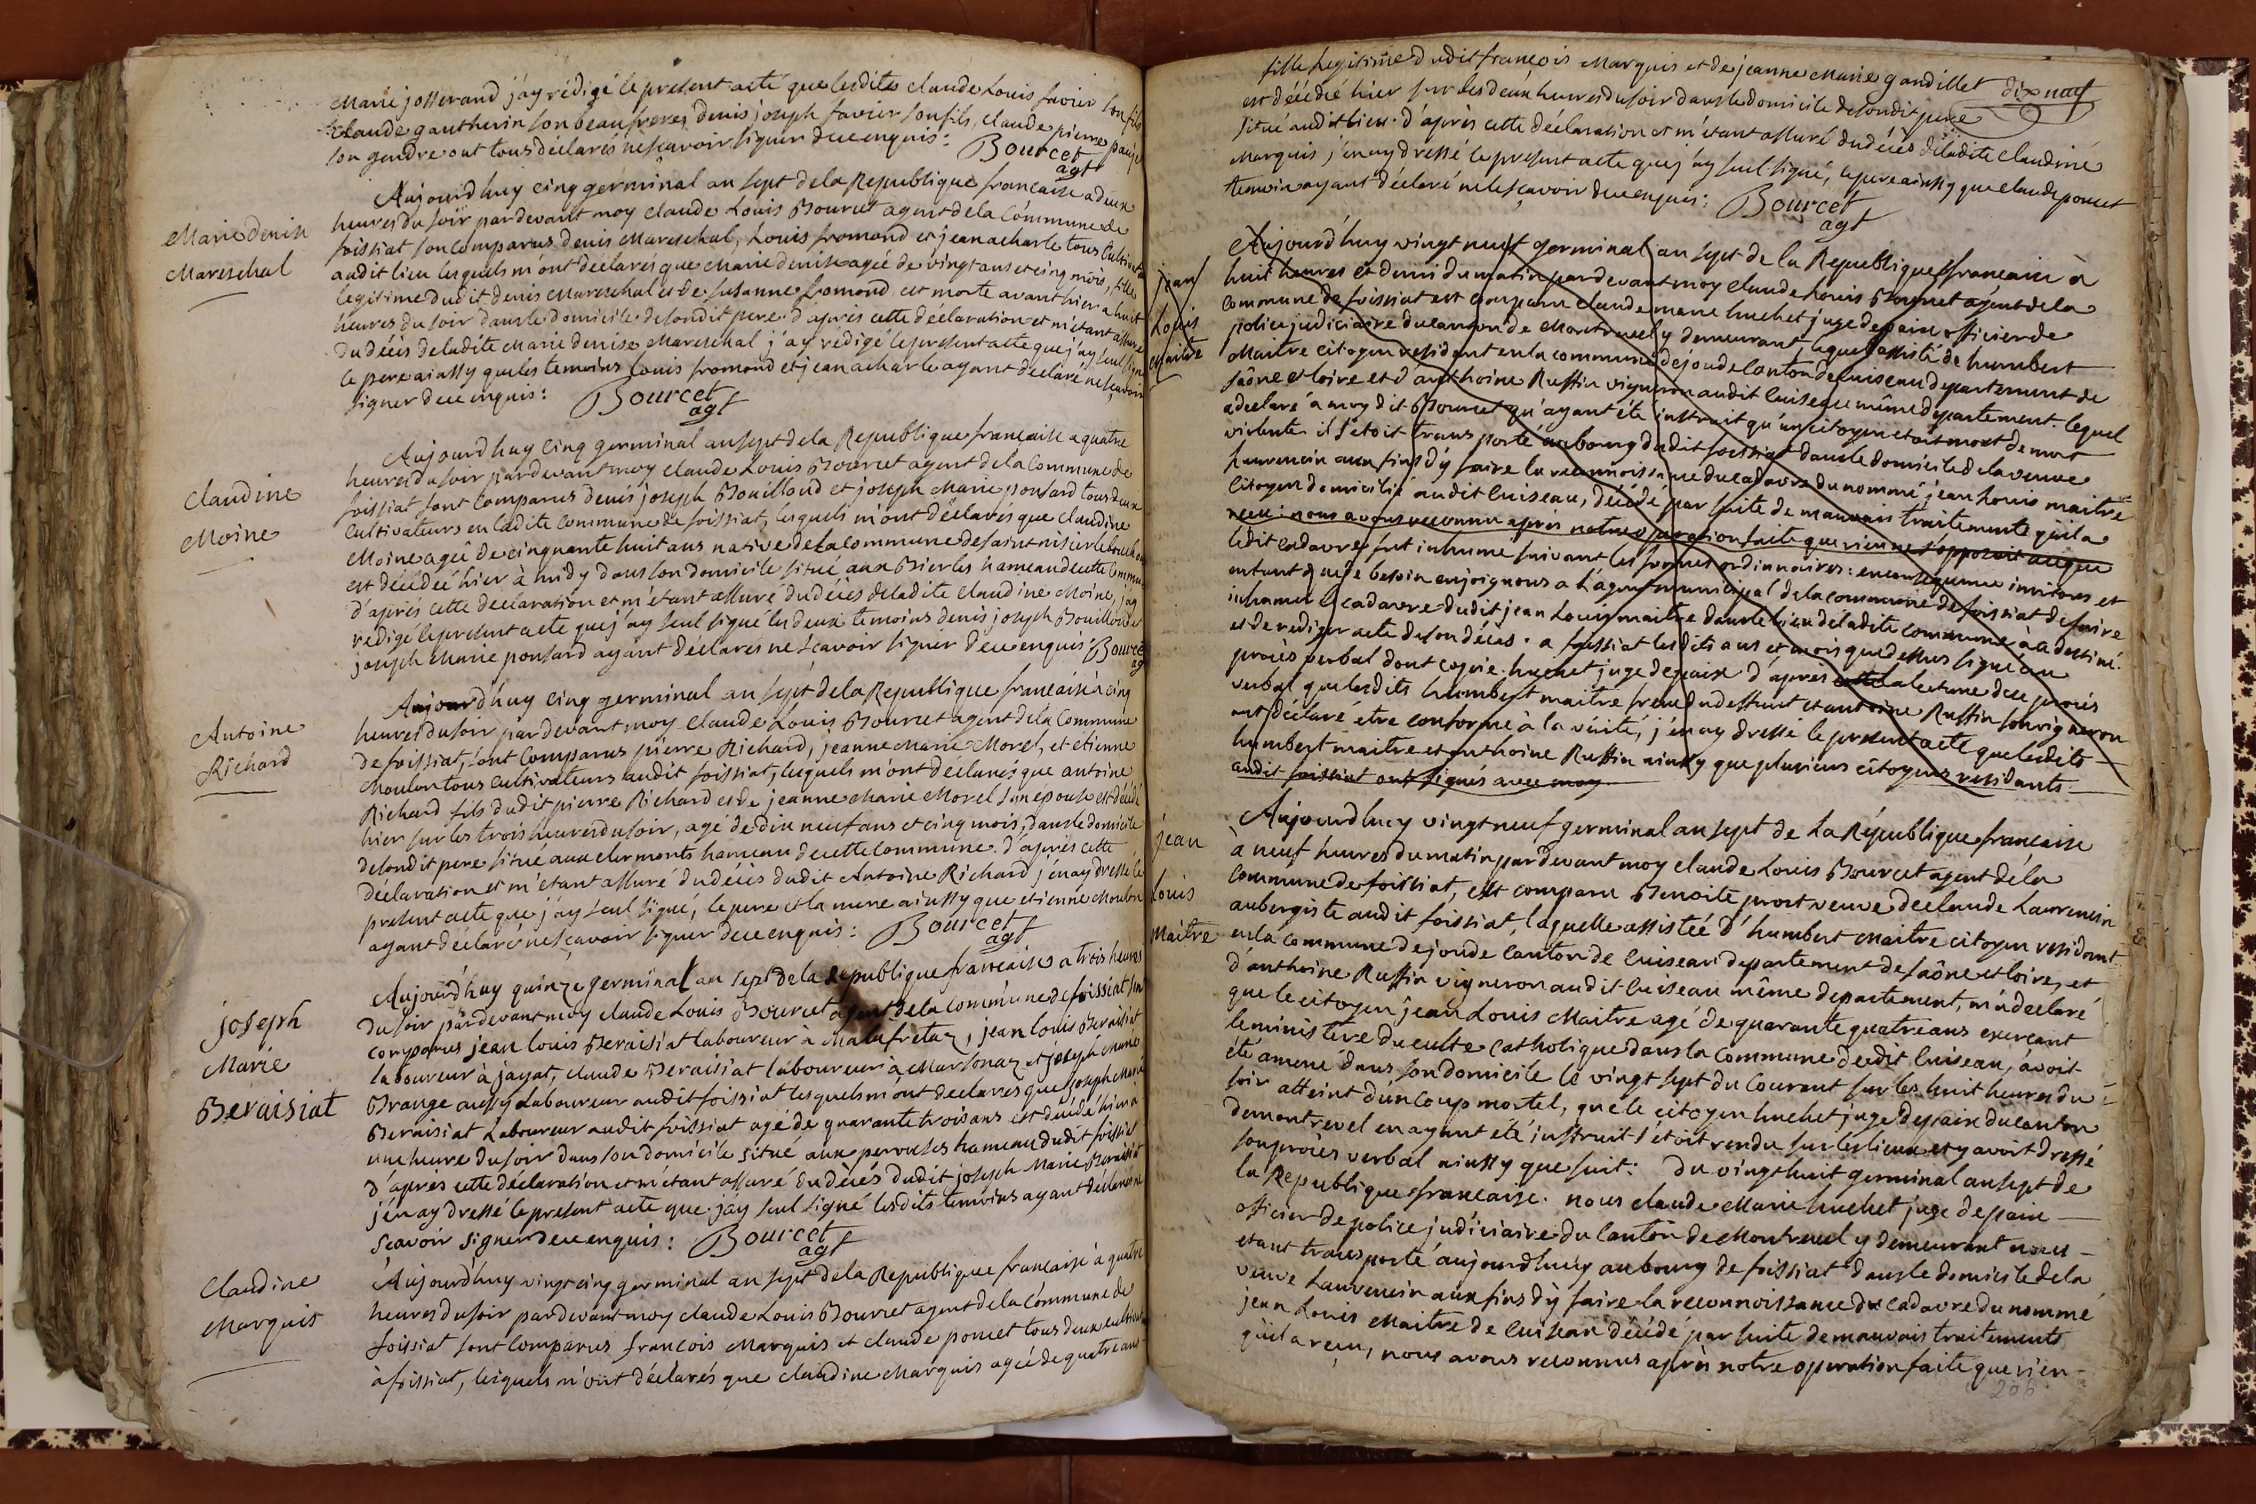 Marie josserand j'ay rédigé le present acte que lesdites claude Louis favier son fils
claude gautherin son beau frere, denis joseph favier son fils, claude pierre
son gendre ont tous déclarés ne scavoir signer de ce enquis: Bourcet
agt
Marie denise
Mareschal
Aujourd'huy cinq germinal an sept de la Republique francaise a deux
heures du soir pardevant moy claude Louis Bourcet agent de la Commune de
foissiat son comparus denis Mareschal, Louis fromond et jean acharle tous Cultivat
audit lieu lesquels m'ont déclarés que Marie denise agée de vingt ans et cinq mois, fille
legitime dudit denis Mareschal et de Susanne fromond est morte avant hier a huit
heures du soir dans le domicile de sondit pere. d'apres cette déclaration et m'étant assuré
du décès de ladite Marie denise Mareschal j'ay redigé le present acte que j'ay seul signé
le pere ainssy que les temoins Louis fromond et jean acharle ayant déclaré ne scavoir
signer de ce enquis: Bourcet
agt
Claudine
Moine
Aujourd'huy cinq germinal an sept de la Republique francaise a quatre
heures du soir pardevant moy claude Louis Bourcet agent de la Commune de
foissiat sont comparus denis joseph Bouilloud et joseph Marie ponsard tous deux
Cultivateurs en ladite Commune de foissiat, lesquels m'ont déclarés que claudine
Moine agée de cinquante huit ans native de la commune de saint nisier le bouchou
est décédée hier à midy dans son domicile situé aux Bierles hameau de cette commu
d'après cette déclaration et m'étant assuré du décès de ladite claudine Moine, j'ay
rédigé le present acte que j'ay seul signé les deux temoins denis joseph Bouilloud et
joseph Marie ponsard ayant déclarés ne scavoir signer de ce enquis Bourcet
agt
Antoine
Richard
Aujourd'huy cinq germinal an sept de la Republique francaise à cinq
heures du soir pardevant moy claude Louis Bourcet agent de la Commune
de foissiat, sont comparus pierre Richard, jeanne Marie Morel, et etienne
Moulon tous cultivateurs audit foissiat, lesquels m'ont déclarés que antoine
Richard fils dudit pierre Richard et de jeanne Marie Morel son epouse est décédé
hier sur les trois heures du soir, agé de dix neuf ans et cinq mois, dans le domicile
de sondit pere situé aux clermonts hameau de cette Commune. d'après cette
déclaration et m'étant assuré du décès dudit Antoine Richard j'en ay dressé le
present acte que j'ay seul signé, le pere et la mere ainssy que etienne Moulon
ayant déclaré ne scavoir signer de ce enquis: Bourcet
agt
joseph
Marie
Beraisiat
Aujourd'huy quinze germinal an sept de la republique francaise a trois heures
du soir pardevant moy claude Louis Bourcet agent de la commune de foissiat son
comparus jean louis Beraisiat laboureur à Malafretaz, jean louis Beraisiat
laboureur à jayat, claude Beraisiat laboureur à Marsonaz et joseph Marie
Brange aussy Laboureur audit foissiat lesquels m'ont déclarés que joseph Marie
Beraisiat Laboureur audit foissiat agé de quarante trois ans est décédé hier à
une heure du soir dans son domicile situé aux perouses hameau dudit foissiat
D'apres cette déclaration et m'étant assuré du décès dudit joseph Marie Beraisiat
j'en ay dressé le present acte que j'ay seul signé lesdits temoins ayant déclaré ne
scavoir signer de ce enquis: Bourcet
agt
Claudine
Marquis
Aujourd'huy vingt cinq germinal an sept de la Republique francaise à quatre
heures du soir pardevant moy claude Louis Bourcet agent de la Commune de
foissiat sont comparus francois Marquis et claude poncet tous deux cultivat
à foissiat, lesquels m'ont déclarés que claudine Marquis agée de quatre ans
dix neuf
fille legitime dudit françois Marquis et de jeanne Marie gandillet
est décédée hier sur les deux heures du soir dans le domicile de sondit pere
situé audit lieu. d'après cette déclaration et m'étant assuré du décès de ladite claudine
Marquis j'en ay dressé le present acte que j'ay seul signé, le pere ainssy que claude poncet
temoin ayant déclaré ne le scavoir de ce enquis: Bourcet
agt
jean
Louis
Maitre
Aujourd'huy vingt neuf germinal an sept de la Republique francaise à
huit heures et demi du matin pardevant moy claude Louis Bourcet agent de la
commune de foissiat est comparu claude marie huchet juge de paix officier de
police judiciaire du canton de Montrevel y demeurant, lequel assisté de humbert
Maitre citoyen resident en la commune de joude canton de Cuiseau departement de
saône et loire et d'anthoine Ruffin vigneron audit Cuiseau même departement. lequel
a declaré a moy dit Bourcet qu'ayant été instruit qu'un citoyen etoit mort de mort
violente il s'etoit transporté au bourg dudit foissiat dans le domicile de la veuve
laurencin aux fins d'y faire la reconnoissance du cadavre du nommé jean Louis maitre
citoyen domicilié audit Cuiseau, décédé par suite de mauvais traitements qu'il a
recu: nous avons reconnu après notre operation faite que rien ne s'opposoit a ce que
ledit cadavre fut inhumé suivant les formes ordinaires: en consequence invitons et
entant que de besoin enjoignons a l'agent municipal de la commune de foissiat de faire
inhumer le cadavre dudit jean Louis maitre dans le lieu de ladite commune à ce destiné.
et de rediger acte de son décès. a foissiat lesdits ans et mois que dessus signé au
procès verbal dont copie. huchet juge de paix d'après la lecture de ce procès
verbal que lesdits humbert maitre frere du deffunt et antoine Ruffin son vigneron
ont déclaré etre conforme à la vérité, j'en ay dressé le present acte que lesdits
humbert maitre et anthoine Ruffin ainssy que plusieurs citoyens residants
audit foissiat ont signés avec moy
jean
Louis
Maitre
Aujourd'huy vingt neuf germinal an sept de la République francaise
à neuf heures du matin pardevant moy claude Louis Bourcet agent de la
commune de foissiat, est comparu Benoite prost veuve de claude Laurencin
aubergiste audit foissiat, laquelle assistée d'humbert Maitre citoyen residant
en la commune de joude canton de Cuiseau departement de saône et loire, et
d'anthoine Ruffin vigneron audit Cuiseau même departement, m'a declaré
que le citoyen jean Louis Maitre agé de quarante quatre ans exercant
le ministère du culte catholique dans la commune dudit Cuiseau, avoit
été amené dans son domicile le vingt sept du Courant sur les huit heures du
soir atteint d'un coup mortel, que le citoyen huchet, juge de paix du canton
de montrevel en ayant été instruit s'étoit rendu sur les lieux et y avoit dressé
son procès verbal ainssy que suit: Du vingt huit germinal an sept de
la Republique francaise. nous claude Marie huchet juge de paix
officier de police judiciaire du canton de Montrevel y demeurant nous
etant transporté aujourd'huy au bourg de foissiat dans le domicile de la
veuve Laurencin aux fins d'y faire la reconnoissance du cadavre du nommé
jean Louis Maitre de Cuiseau décédé par suite de mauvais traitements
qu'il a reçu, nous avons reconnus après notre operation faite que rien
206